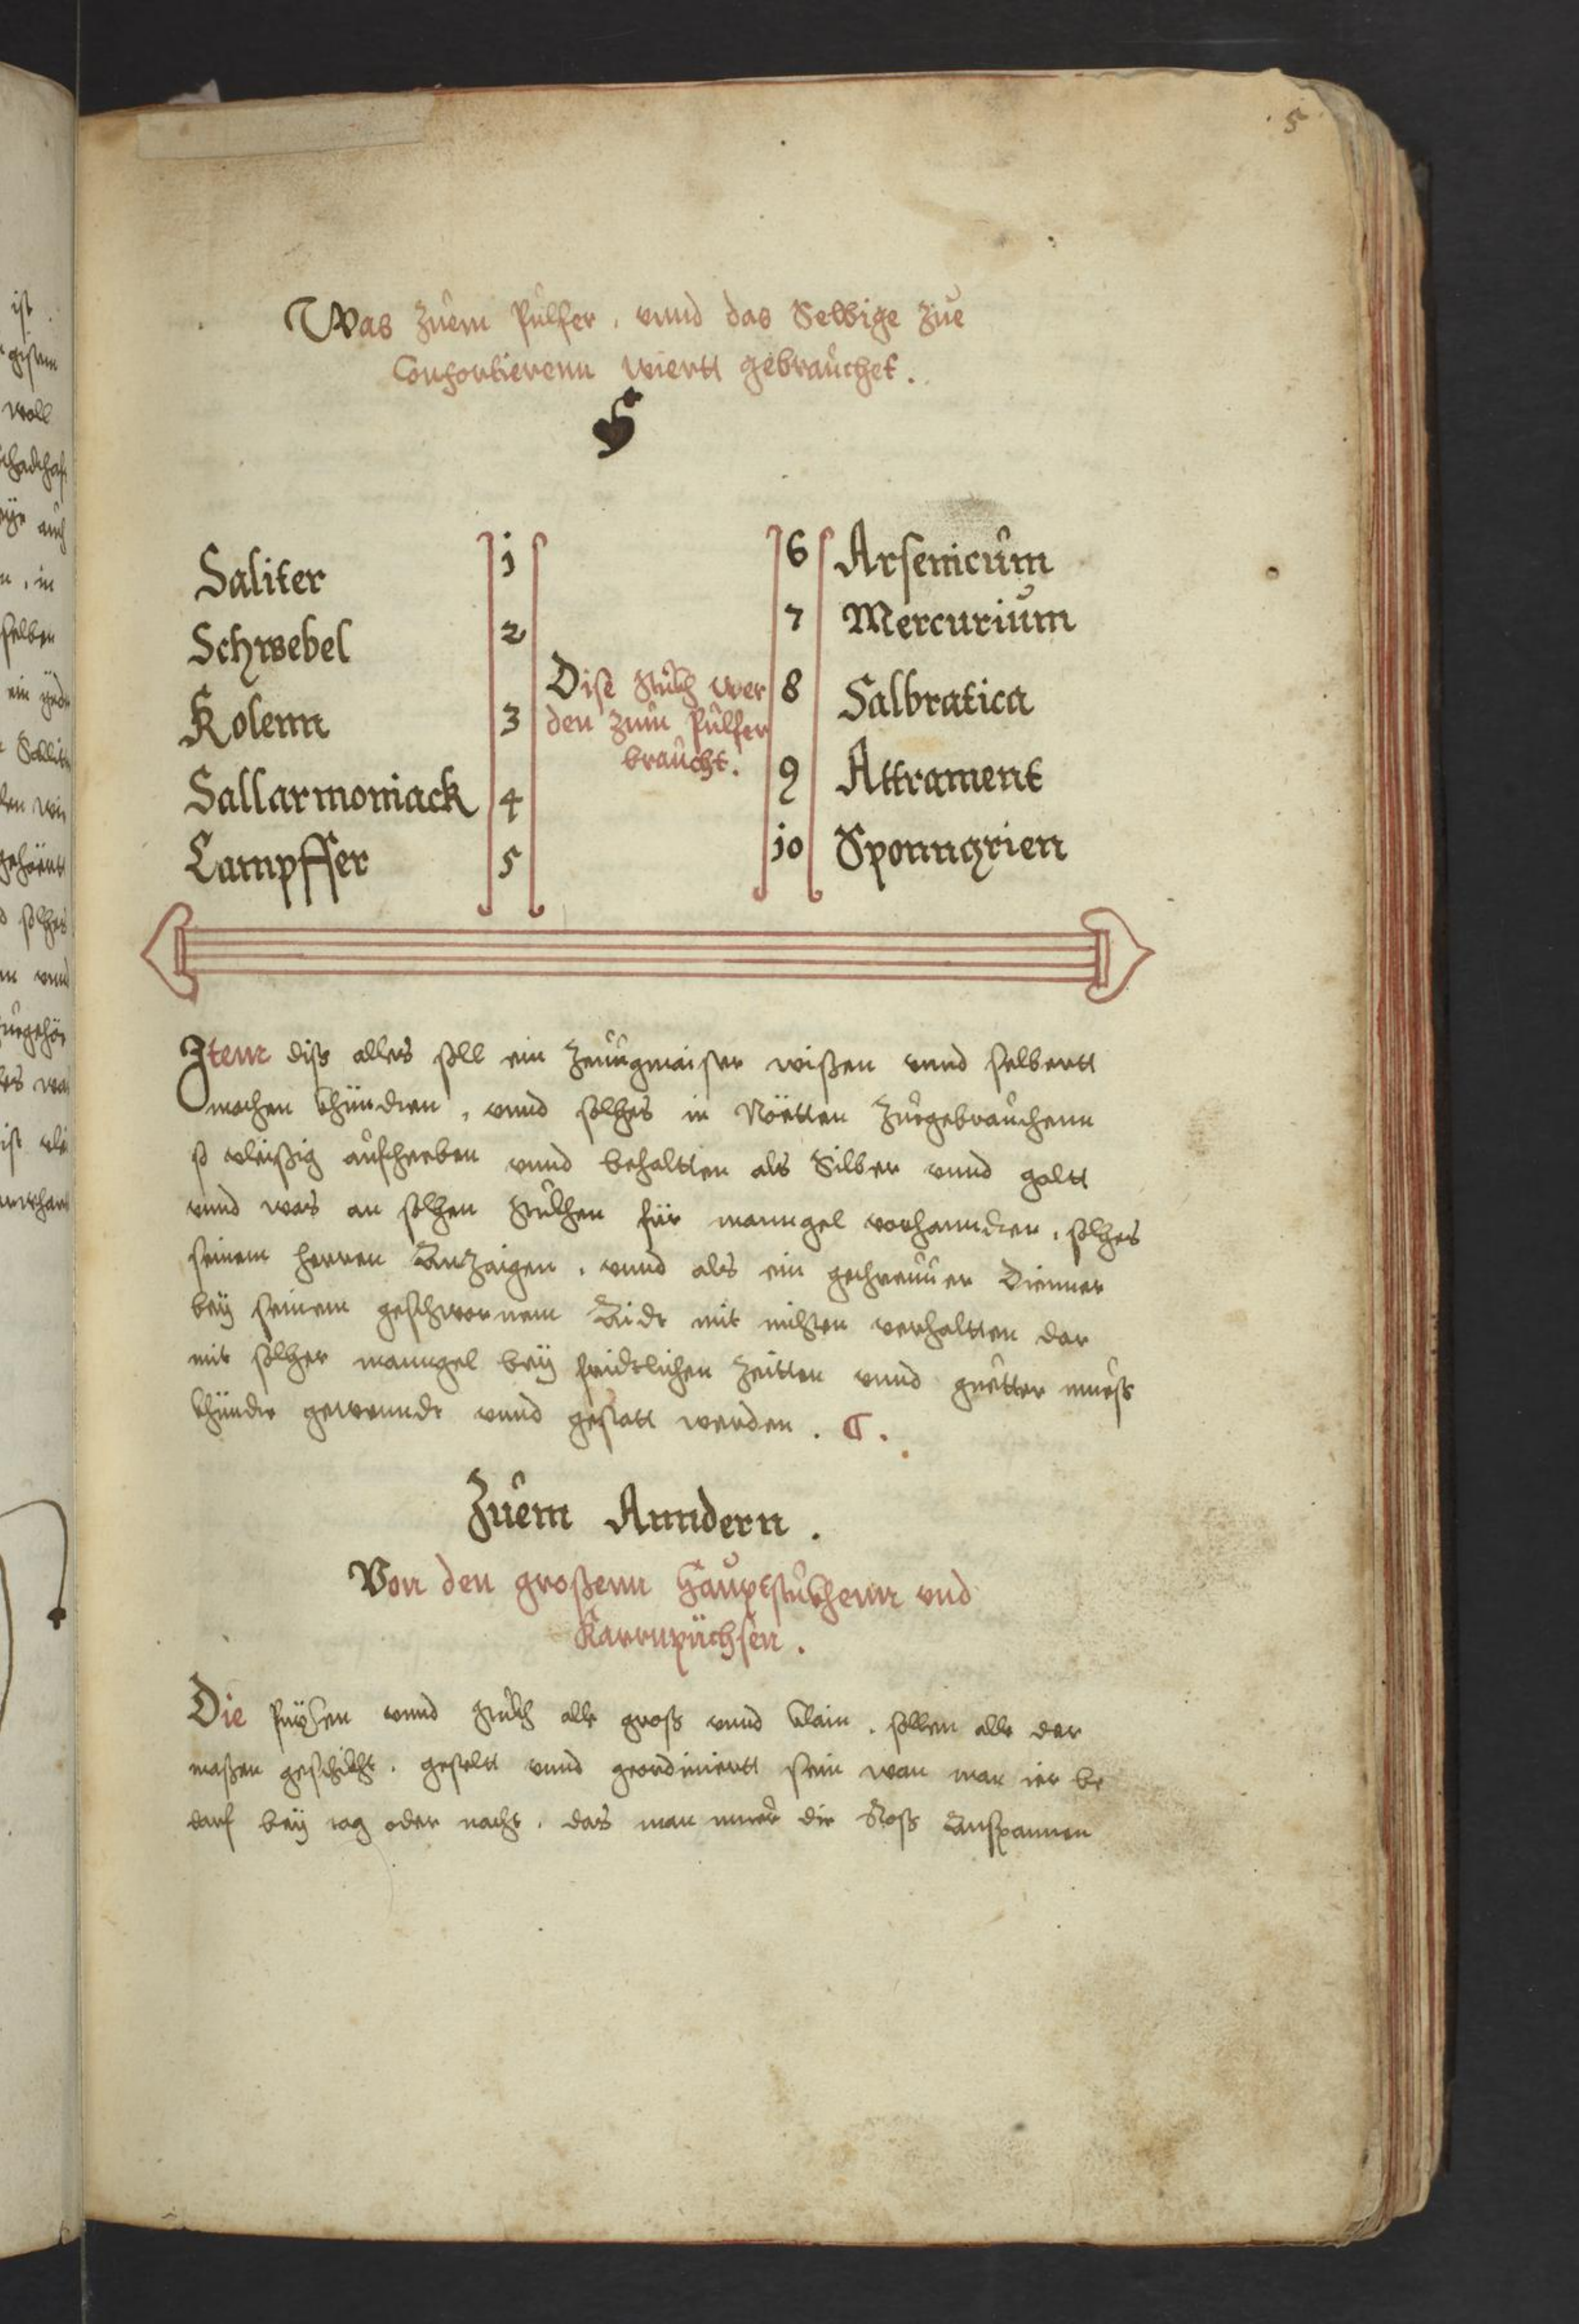 5
Was Zuem Pulfer, vnnd das Selbige Zue
Confortierenn wiertt gebrauchet.
Saliter 1
Schwebel 2
Kolenn 3
Sallarmoniack 4
Campffer 5
Dise stukh wer
den zum Pulfer
braucht.
6 Arsenicum
7 Mercurium
8 Salbratica
9 Attrament
10 Sponngrien
Item diss alles soll ein Zeugmaister wißen vnnd selbertt
machen khünden, vnnd solhes in Nöetten Zuegebrauchenn
so vleißig aufheeben vnnd behaltten als Silber vnnd golltt
vnnd was an solhen stukhen für manngel vorhannden, solhes
seinem herren Anzaigen, vnnd als ein gethreuer Dienner
bey seinem geschwornem Aide mit nihten verhaltten dar
mit solher manngel bey fridtlichen Zeitten vnnd guetter mueß
khünde gewenndt vnnd gestatt werden.
Zuem Anndern.
Von den großenn Hauptstukhenn vnd
Karrnpüchsen.
Die püxsen vnnd stukh alle groß vnnd klain, sollen alle der
maßen geschikht, gestelt vnnd geordiniertt sein wan man ier be
darf bey tag oder nacht, das man nuer die Roß Anspannen